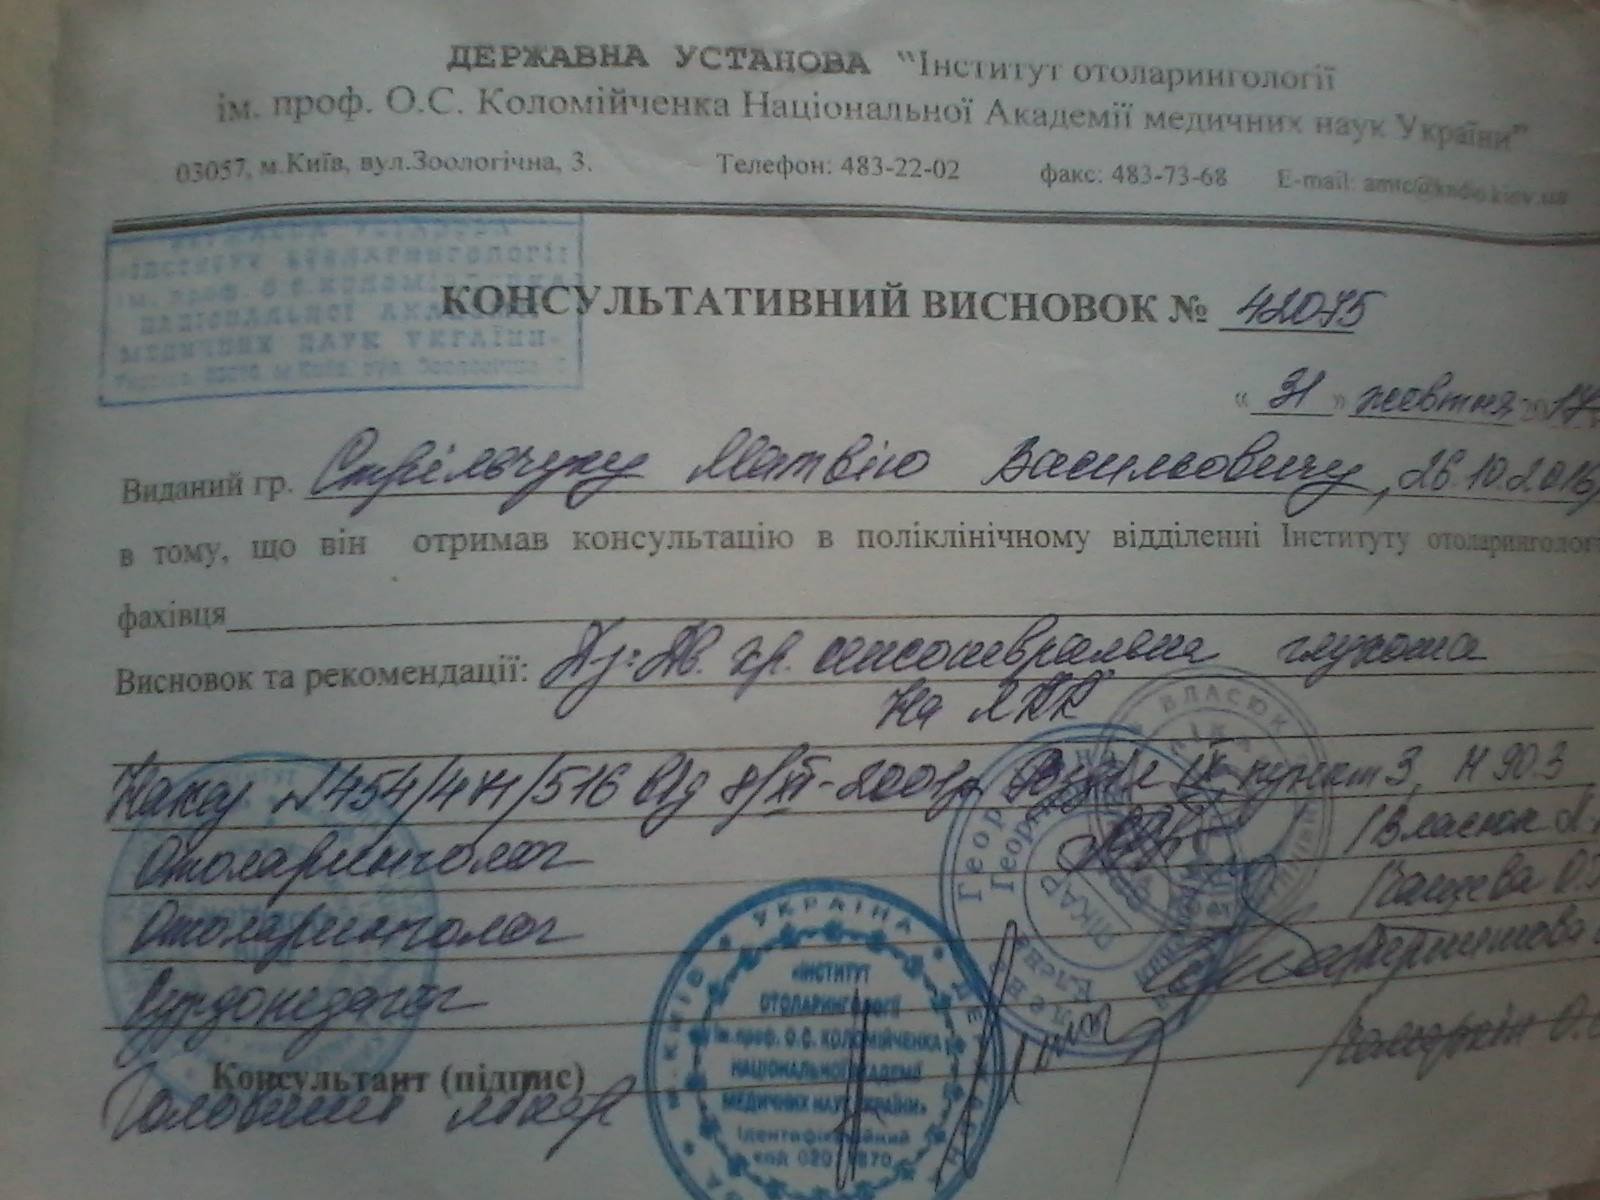 ДЕРЖАВНА УСТАНОВА "Інститут отоларингології
ім. проф. О.С. Коломійченка Національної Академії медичних наук України"
03057, м.Київ, вул.Зоологічна, 3. Телефон: 483-22-02 факс: 483-73-68 E-mail: amtc@kndio.kiev.ua
КОНСУЛЬТАТИВНИЙ ВИСНОВОК № 42075
"31" жовтня 2017
Виданий гр. Стрільчуку Матвію Васильовичу, 26.10.2016
в тому, що він отримав консультацію в поліклінічному відділенні Інституту отоларинголог
фахівця
Висновок та рекомендації: Дз: Дв. хр. сенсоневральна глухота
На ЛКК
Наказ №454/471/516 від 8/XI-2001р. Розділ IX пункт 3, Н 90.3
Отоларинголог /Власюк Л.
Отоларинголог
Сурдопедагог
Консультант (підпис)
Головний лікар
УКРАЇНА * м.КИЇВ
«ІНСТИТУТ
ОТОЛАРИНГОЛОГІЇ
ім.проф. О.С. КОЛОМІЙЧЕНКА
НАЦІОНАЛЬНОЇ АКАДЕМІЇ
МЕДИЧНИХ НАУК УКРАЇНИ»
Ідентифікаційний
код
ВЛАСЮК
ЛІКАР